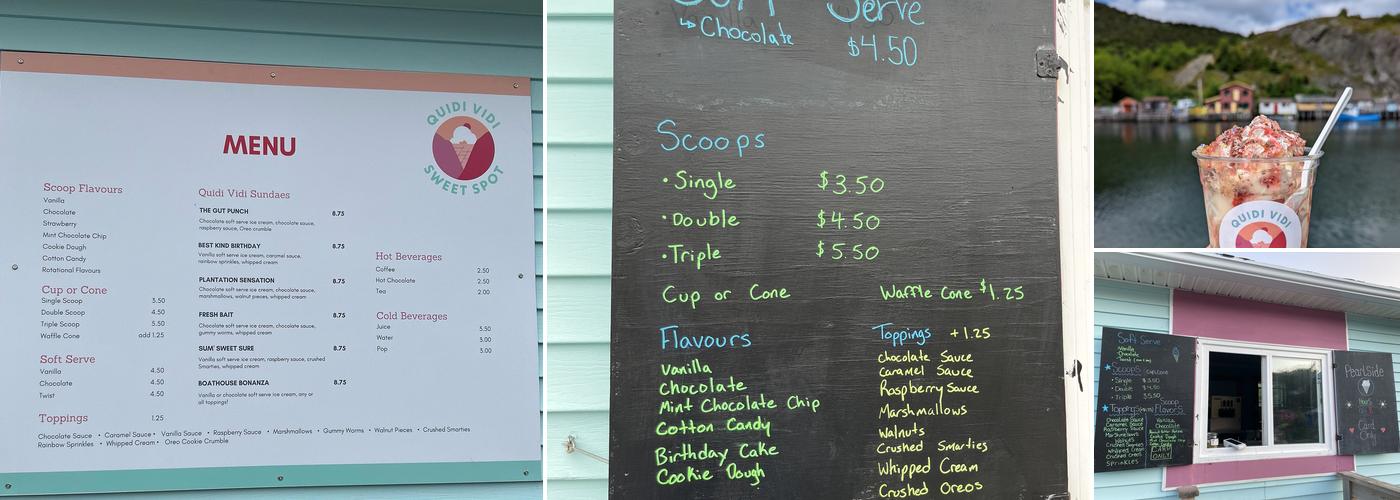 QUIDI VIDI
SWEET SPOT
MENU
Scoop Flavours
Vanilla
Chocolate
Strawberry
Mint Chocolate Chip
Cookie Dough
Cotton Candy
Rotational Flavours
Cup or Cone
Single Scoop 3.50
Double Scoop 4.50
Triple Scoop 5.50
Waffle Cone add 1.25
Soft Serve
Vanilla 4.50
Chocolate 4.50
Twist 4.50
Quidi Vidi Sundaes
THE GUT PUNCH 8.75
Chocolate soft serve ice cream, chocolate sauce,
raspberry sauce, Oreo crumble
BEST KIND BIRTHDAY 8.75
Vanilla soft serve ice cream, caramel sauce,
rainbow sprinkles, whipped cream
PLANTATION SENSATION 8.75
Chocolate soft serve ice cream, chocolate sauce,
marshmallows, walnut pieces, whipped cream
FRESH BAIT 8.75
Chocolate soft serve ice cream, chocolate sauce,
gummy worms, whipped cream
SUM' SWEET SURE 8.75
Vanilla soft serve ice cream, raspberry sauce, crushed
Smarties, whipped cream
BOATHOUSE BONANZA 8.75
Vanilla or chocolate soft serve ice cream, any or
all toppings!
Hot Beverages
Coffee 2.50
Hot Chocolate 2.50
Tea 2.00
Cold Beverages
Juice 3.50
Water 3.00
Pop 3.00
Toppings 1.25
Chocolate Sauce • Caramel Sauce • Vanilla Sauce • Raspberry Sauce • Marshmallows • Gummy Worms • Walnut Pieces • Crushed Smarties
Rainbow Sprinkles • Whipped Cream • Oreo Cookie Crumble
Soft Serve
↳ Chocolate $4.50
Scoops
• Single $3.50
• Double $4.50
• Triple $5.50
Cup or Cone Waffle Cone $1.25
Flavours
Vanilla
Chocolate
Mint Chocolate Chip
Cotton Candy
Birthday Cake
Cookie Dough
Toppings +1.25
Chocolate Sauce
Caramel Sauce
Raspberry Sauce
Marshmallows
Walnuts
Crushed Smarties
Whipped Cream
Crushed Oreos
QUIDI VIDI
Soft Serve
• Vanilla
• Chocolate
Scoops
• Single $3.50
• Double $4.50
• Triple $5.50
Toppings
Chocolate Sauce
Caramel Sauce
Raspberry Sauce
Marshmallows
Walnuts
Crushed Smarties
Whipped Cream
Crushed Oreos
Sprinkles
Scoop
Flavors
Vanilla
Chocolate
CARD
ONLY
PearlSide
Hours
Card
Only